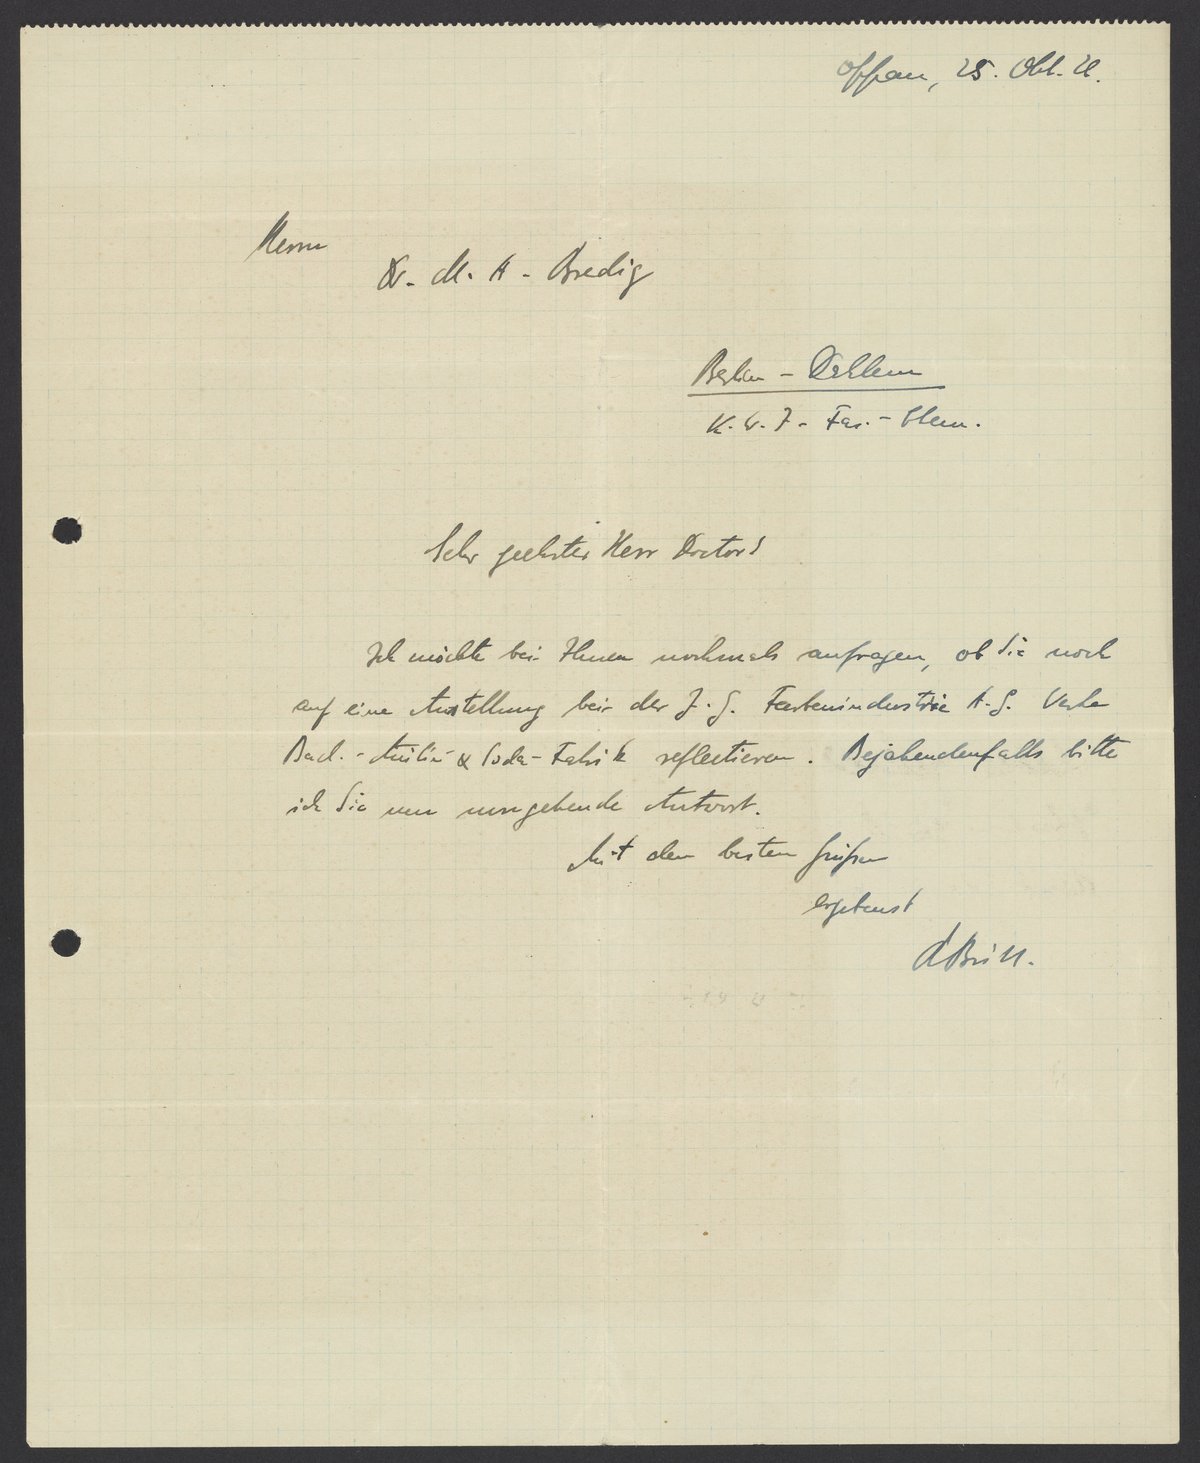 Oppau, 25. Okt. 26.
Herrn
Dr. M. A. Bredig
Berlin - Dahlem
K. W. J. - Fas. - Chem.
Sehr geehrter Herr Doctor!
Ich möchte bei Ihnen nochmals anfragen, ob Sie noch
auf eine Anstellung bei der J. G. Farbenindustrie A. G. Werke
Bad. - Anilin & Soda - Fabrik reflectieren. Bejahendenfalls bitte
ich Sie um umgehende Antwort.
Mit den besten Grüßen
ergebenst
ABrill.